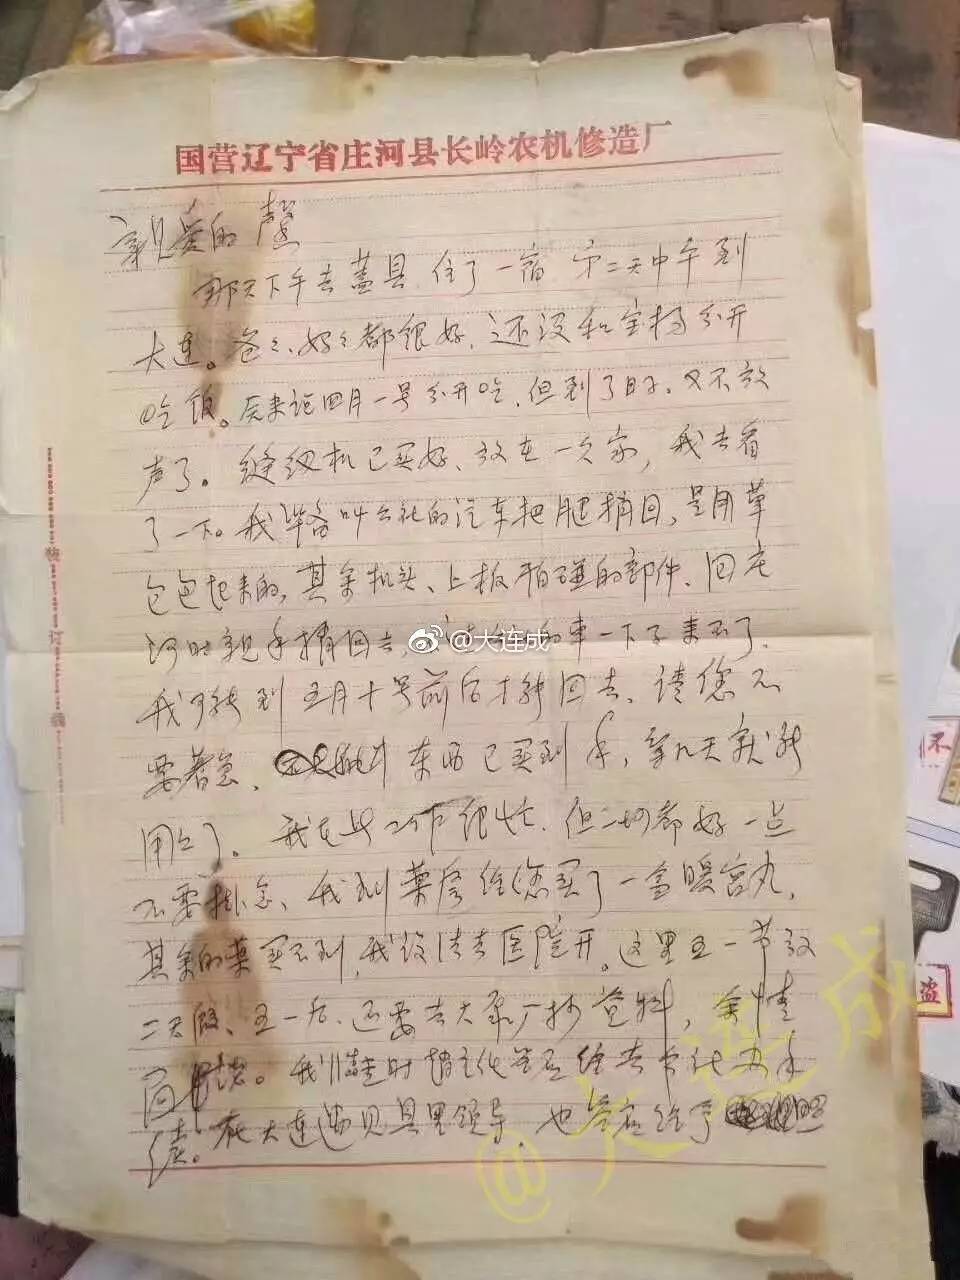 国营辽宁省庄河县长岭农机修造厂
亲爱的馨
那天下午去盖县，住了一宿，第二天中午到
大连。爸爸、妈妈都很好，还没和宝杨分开
吃饭。原来说四月一号分开吃，但到了日子，又不放
声了。缝纫机已买好、放在一久家，我去看
了一下。我准备叫公社的汽车把腿捎回，是用草
包包起来的，其余机头、上板怕碰的部件、回庄
河时亲手捎回去，的车一下子来不了。
我可能到五月十号前后才能回去、请您不
要着急，东西已买到手，拿几天就能
用上了。我在此工作很忙，但一切都好一点
不要挂念、我到药店给您买了一盒暖宫丸，
其余的药买不到，我设法去医院开。这里五一节放
二天假、五一后、还要去大厂抄资料，余情
回。我临走时主任答应给去办手
续。在大连遇见县里领导，也答应给
装订线
@大连成
@大连成
不
盗